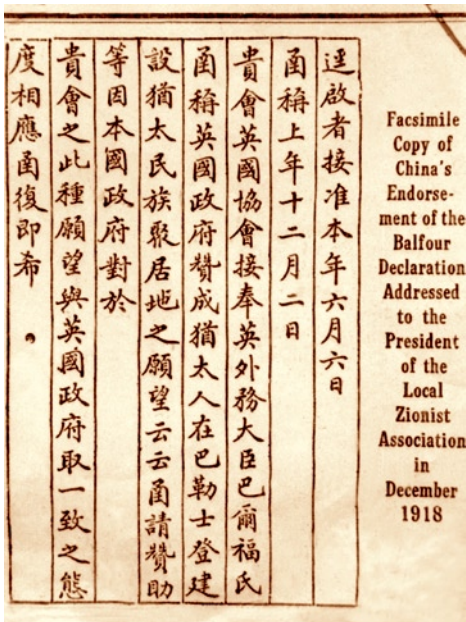 Facsimile
Copy of
China's
Endorse-
ment of the
Balfour
Declaration
Addressed
to the
President
of the
Local
Zionist
Association
in
December
1918
逕啟者接准本年六月六日
函稱上年十二月二日
貴會英國協會接奉英外務大臣巴爾福氏
函稱英國政府贊成猶太人在巴勒士登建
設猶太民族聚居地之願望云云函請贊助
等因本國政府對於
貴會之此種願望與英國政府取一致之態
度相應函復即希。